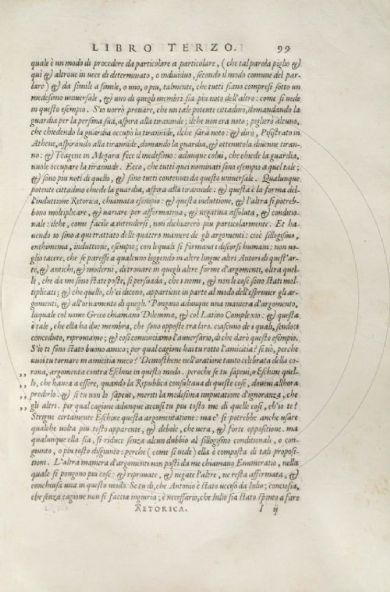 LIBRO TERZO. 99
quale è un modo di procedere da particolare a particolare, (che tal parola piglio &
qui & altroue in vece di determinato, o indiuiduo, secondo il modo comune del par-
laro) & da simili a simile, o uno, o piu, talmente, che tutti siano compresi sotto un
medesimo uniuersale, & uno di quegli membri sia piu noto dell'altro: come si uede
in questo esempio. S'io vorrò prouare, che un tale potente cittadino, domandando la
guardia per la persona sua, aspira alla tirannide; ilche non era noto; piglierò alcuno,
che chiedendo la guardia occupò la tirannide, ilche sarà noto: & dirò, Pisistrato in
Athene, aspirando alla tirannide, domandò la guardia, & ottenutola diuenne tiran-
no: & Teagene in Megara fece il medesimo: adunque colui, che chiede la guardia,
uuole occupare la tirannide. Ecco, che tutti quei nominati sono esempio a quel tale;
& sono piu noti di quello, & sono tutti contenuti da questo uniuersale. Qualunque
potente cittadino chiede la guardia, aspira alla tirannide: & questa è la forma del-
l'induttione Retorica, chiamata esempio: & questa induttione, & l'altra si potreb-
bono moltiplicare, & uariare per affermatiua, & negatiua assoluta, & conditio-
nale: ilche, come facile a intendersi, non dichiarerò piu particolarmente. Et ha-
uendo io sino a qui trattato delle quattro maniere de gli argomenti: cioè sillogismo,
enthimema, induttione, esempio; con le quali si formano i discorsi humani; non uo-
glio tacere, che se paresse a qualcun leggendo in altre lingue altri Autori di quest'ar-
te, & antichi, & moderni, di trouare in quegli altre forme d'argomenti, oltra quel-
le, che da me sono state poste, si persuada, che i nomi, & non le cose sono stati mol-
tiplicati; & che quello, ch'ei dicono, appartiene in parte al modo dell'esprimer gli ar-
gomenti, & all'ornamento di quegli. Pongono adunque una maniera d'argomento,
laquale col nome Greco chiamano Dilemma, & col Latino Complexio: & questa
è tale, che ella ha due membra, che sono opposte tra loro. ciascuno de i quali, sendoti
conceduto, reprouamo; & così conuinciamo l'auuersario, di che darò questo esempio.
S'io ti sono stato buono amico; per qual cagione hai tu rotto l'amicitia? se nò, perche
uuoi tu tornare in amicitia meco? Demosthene nell'oratione tanto celebrata della co-
,, rona, argomenta contra Eschine in questo modo. perche se tu sapeui, o Eschine quel-
,, lo, che haueua a essere, quando la Republica consultaua di queste cose, doueui allhora
,, predirlo: & se tu non lo sapeui, meriti la medesima imputatione d'ignoranza, che
,, gli altri. per qual cagione adunque accusi tu piu tosto me di quelle cose, ch'io te?
Stregne certamente Eschine questa argomentatione: ma e' si potrebbe anche usare
qualche volta piu tosto apparente, & debole, che uera, & forte oppositione. ma
qualunque ella sia, si riduce senza alcun dubbio al sillogismo conditionale, o con-
giunto, o piu tosto disgiunto: perche (come si uede) ella è composta di tali proposi-
tioni. L'altra maniera d'argomenti non posti da me chiamano Enumeratio, nella
quale si pongono piu cose: & reprouate, & negate l'altre, ne resta affermata, &
conchiusa una in questo modo. Se tu di, che Antonio è stato ucciso da Iulio; conciosia,
che senza cagione non si faccia ingiuria; è necessario, che Iulio sia stato spinto a farlo
RETORICA. I ij